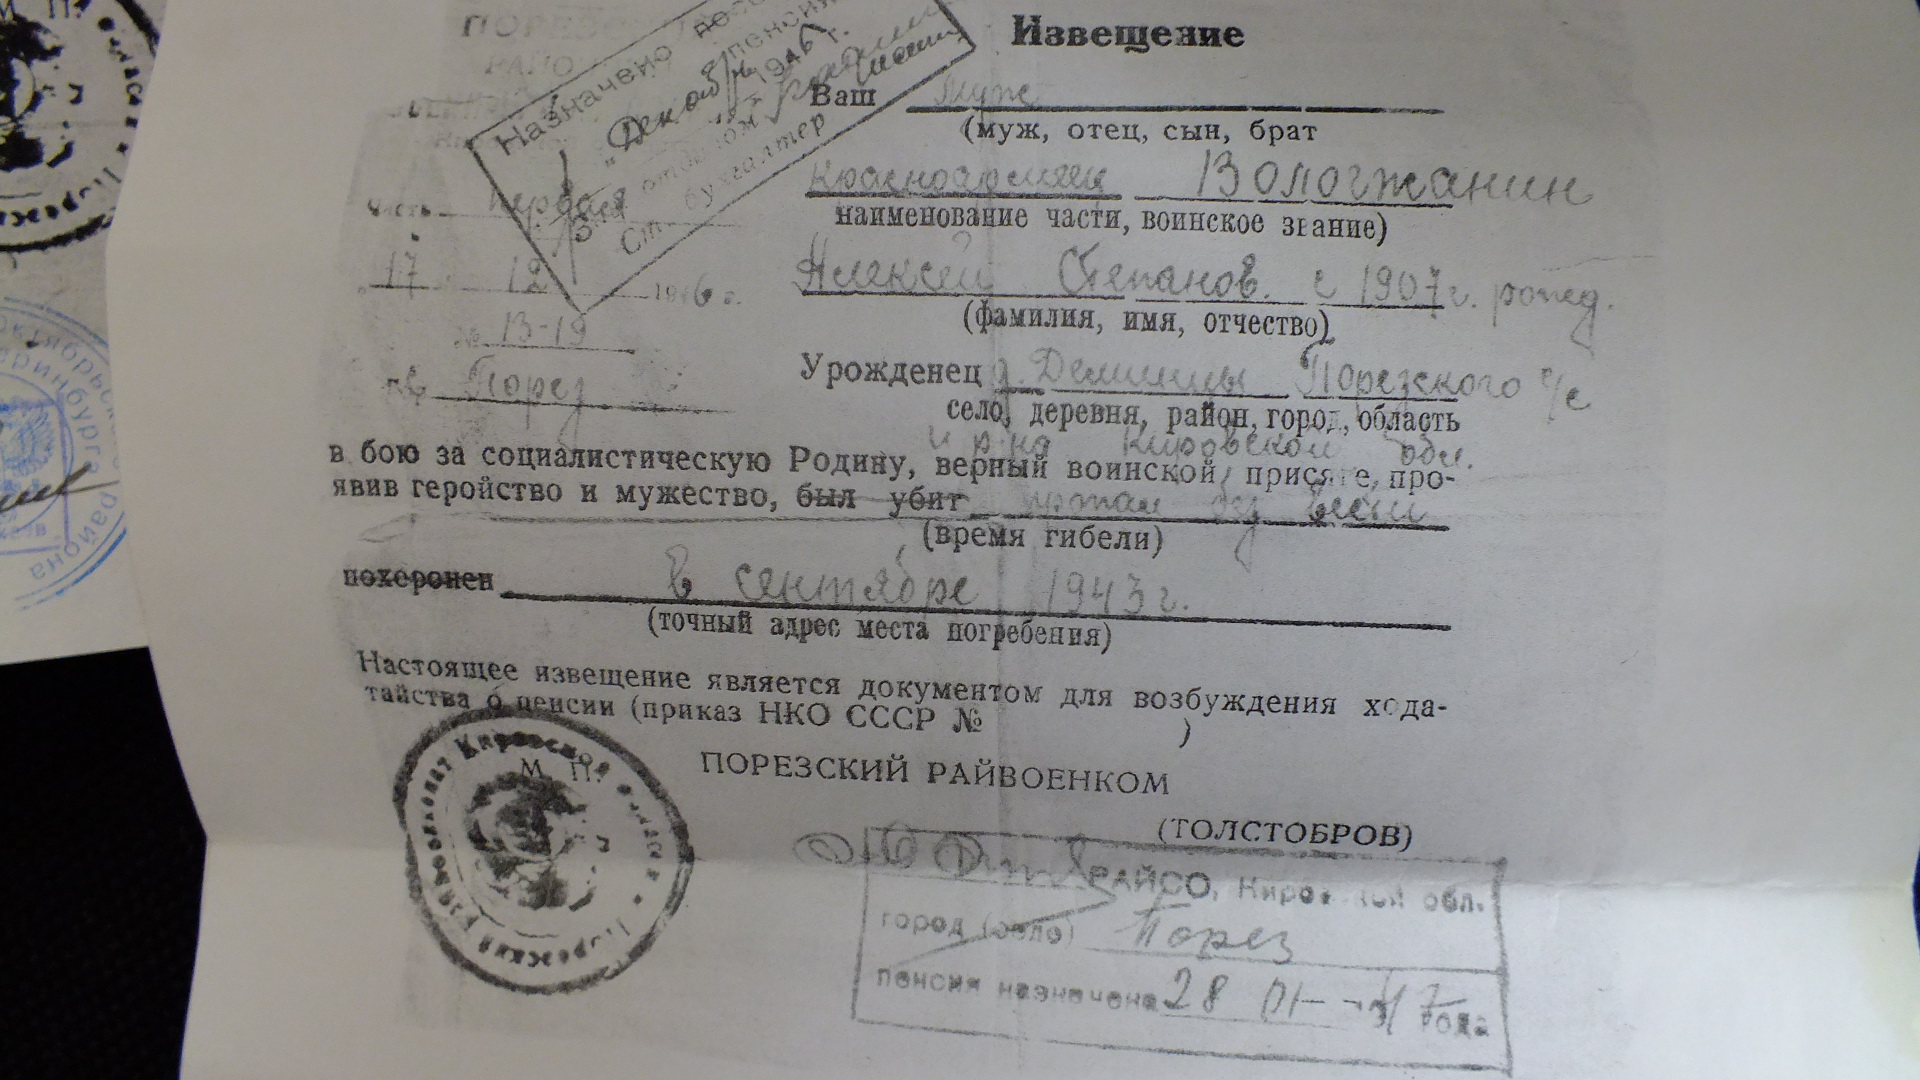 М П.
ПОРЕЗ
РАЙО
Назначено пенсия
Декабр 1946 г.
Ст. бухгалтер
часть первая
17 12 1946 г.
№ 13-19
Порез
Извещение
Ваш муж
(муж, отец, сын, брат
красноармеец Вологжанин
наименование части, воинское звание)
Алексей Степанов. с 1907 г. рожд.
(фамилия, имя, отчество)
Урожденец д. Демшицы Порезского с/с
село, деревня, район, город, область
и р-на Кировской обл.
в бою за социалистическую Родину, верный воинской присяге, про-
явив геройство и мужество, был убит пропал без вести
(время гибели)
похоронен в сентябре 1943 г.
(точный адрес места погребения)
Настоящее извещение является документом для возбуждения хода-
тайства о пенсии (приказ НКО СССР № )
М П.
ПОРЕЗСКИЙ РАЙВОЕНКОМ
(ТОЛСТОБРОВ)
Порезский Райвоенкомат Кировской области
РАЙСО, Кировской обл.
город (село) Порез
пенсия назначена 28 01 47 года